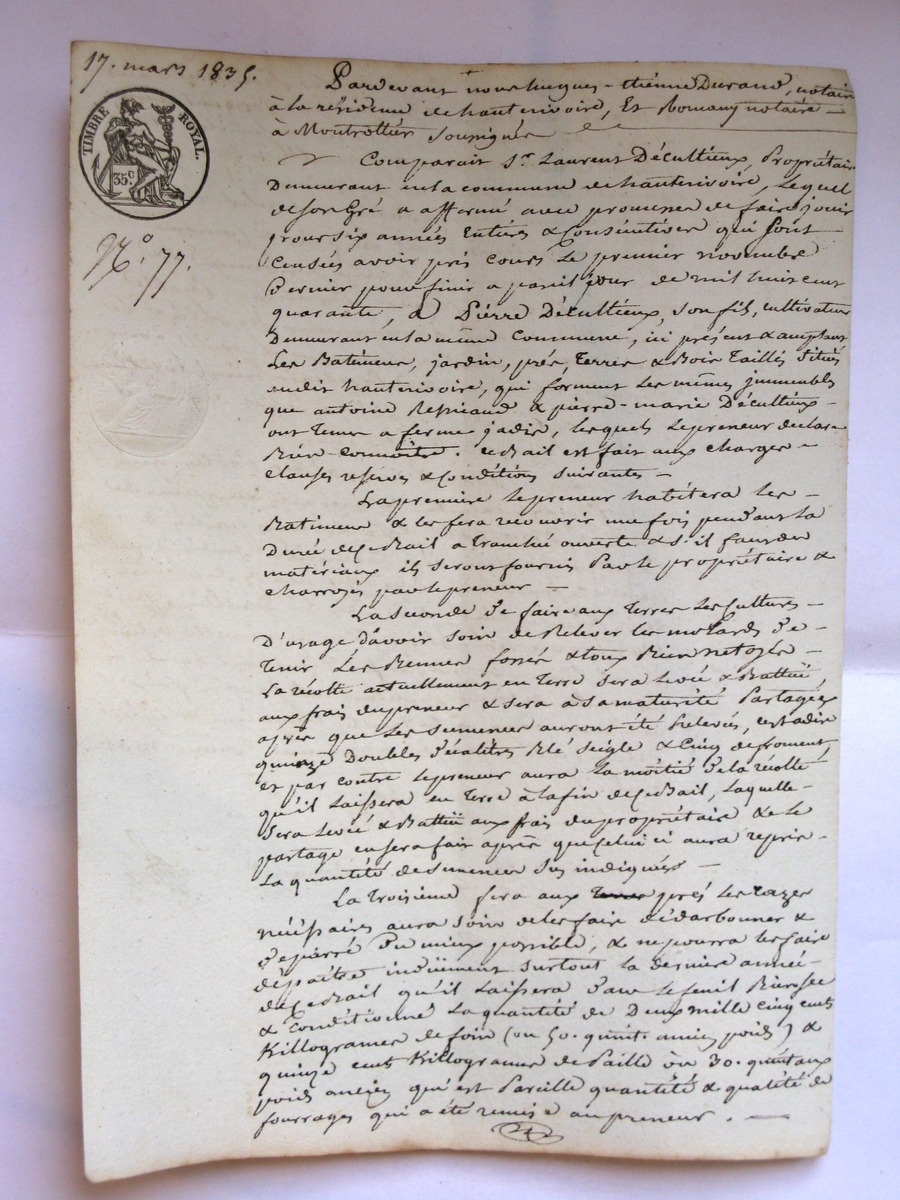 17. mars 1835.
TIMBRE ROYAL.
35c
N.° 77.
Pardevant nous hugues-étienne Durand, notaire
à la résidence de hauterivoire, Et Romany notaire
à Montrottier soussignés
Comparait Sr. Laurent Décultieux, Propriétaire
Demeurant en la commune de hauterivoire, Lequel
de son Gré a affermé avec promesse de faire jouir
pour six années Entières & Consécutives qui sont
Censées avoir pris cours Le premier novembre
Dernier pour finir a pareil jour de mil huit cent
quarante, à Pierre Décultieux, son fils, cultivateur
Demeurant en la même Commune, ici présent & acceptant
Les Batimens, jardin, prés, Terres & Bois Taillis situés
audit hauterivoire, qui forment Les mêmes immeubles
que antoine & pierre-marie Décultieux
ont Tenus a ferme jadis, lesquels Le preneur déclare
Bien Connoître. ce Bail est fait aux charges
clauses réserves & Conditions suivantes
La première Le preneur habitera Les
Batimens & les fera recouvrir une fois pendant La
Durée de ce Bail a Tranché ouverte & s'il faut des
matériaux ils seront fournis Par le propriétaire &
charroyés par le preneur
La Seconde De faire aux Terres Les Cultures
D'usage D'avoir soin de Relever les molards De
Tenir Les fossés & Bien netoyés
La récolte actuellement en Terre sera Levée & Battüe
aux frais du preneur & sera à sa maturité Partagée
après que Les semences auront été Relevées, c'est adire
quinze Doubles Décalitres Blé seigle & Cinq de froment,
et par contre Le preneur aura La moitié De la récolte
qu'il Laissera en Terre à la fin de ce Bail, Laquelle
sera Levée & Battüe aux frais du propriétaire & Le
partage en sera fait après que Celui ci aura repris
La quantité de semences sus indiquées
La Troisième fera aux Terres prés Les razes
nécéssaires aura soin de les faire dédarbonner &
Depierré Du mieux possible, & ne pourra les faire
dépaître indüement surtout la dernière année
de ce Bail qu'il Laissera Dans le fenil Bien sec
& Conditionné La quantité de Deux mille cinq cents
Killogrames de foin (ou 50. quint. anciens poids) &
quinze cents Killogrames de Paille ou 30. quintaux
poids anciens qui est Pareille quantité & qualité de
fourrages qui a été remise au preneur.